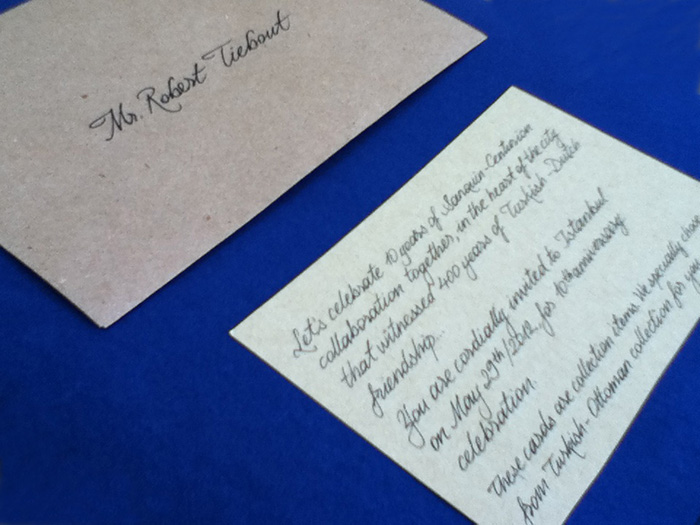 Mr. Robert Tiebout
Let's celebrate 10 years of Sanquin-Centurion
collaboration together, in the heart of the city
that witnessed 400 years of Turkish-Dutch
friendship...
You are cordially invited to Istanbul
on May 29th/2012, for 10th anniversary
celebration.
These cards are collection items. We specially
from Turkish-Ottoman collection for